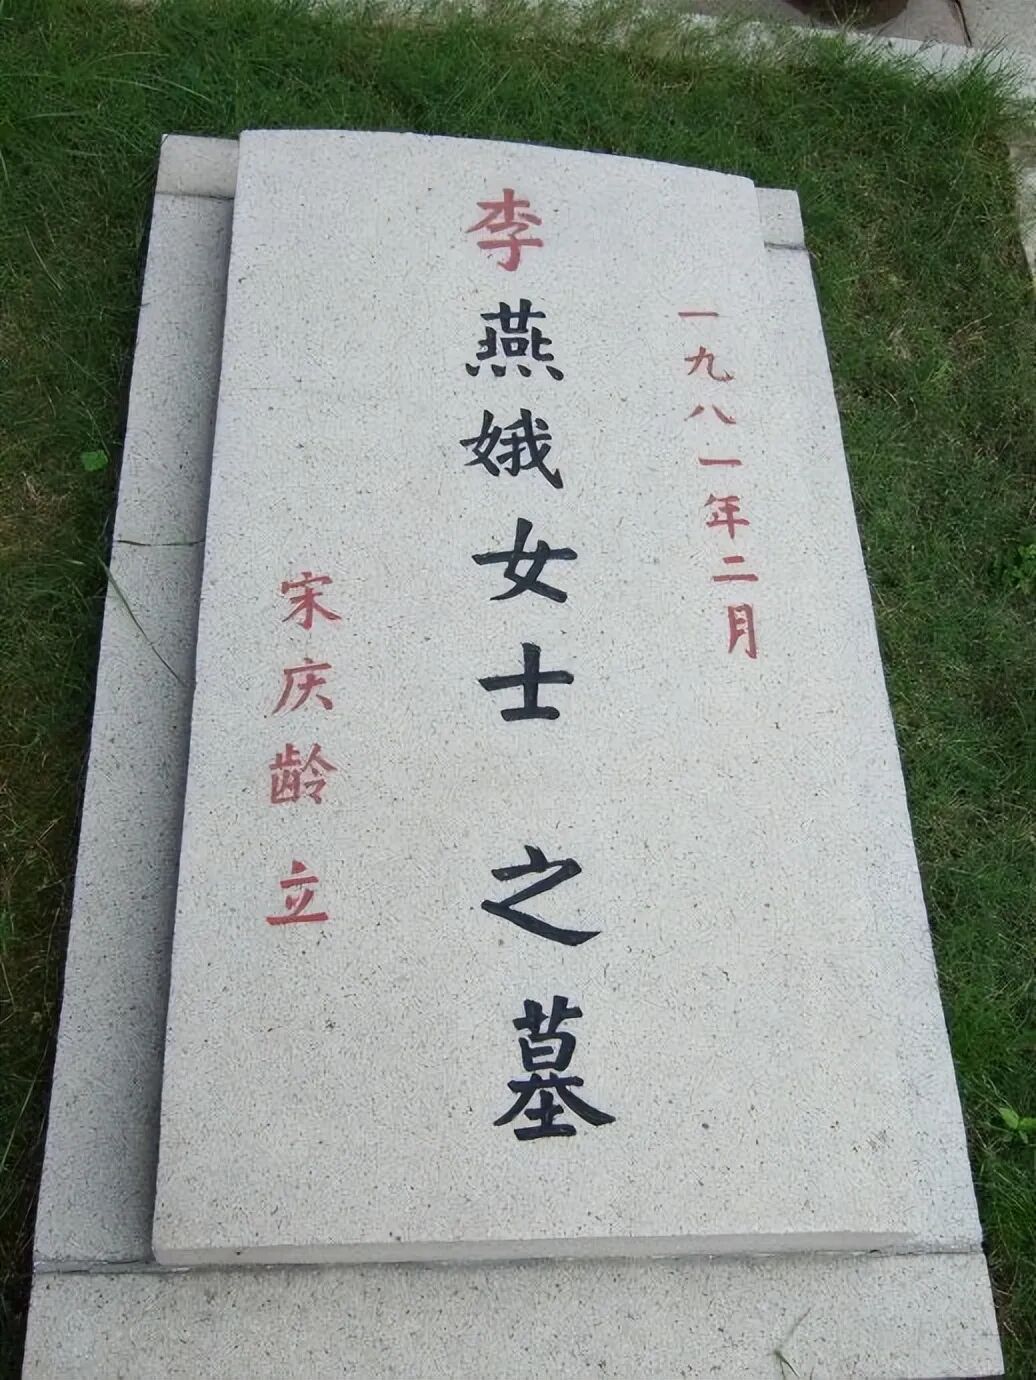 一九八一年二月
李燕娥女士之墓
宋庆龄立